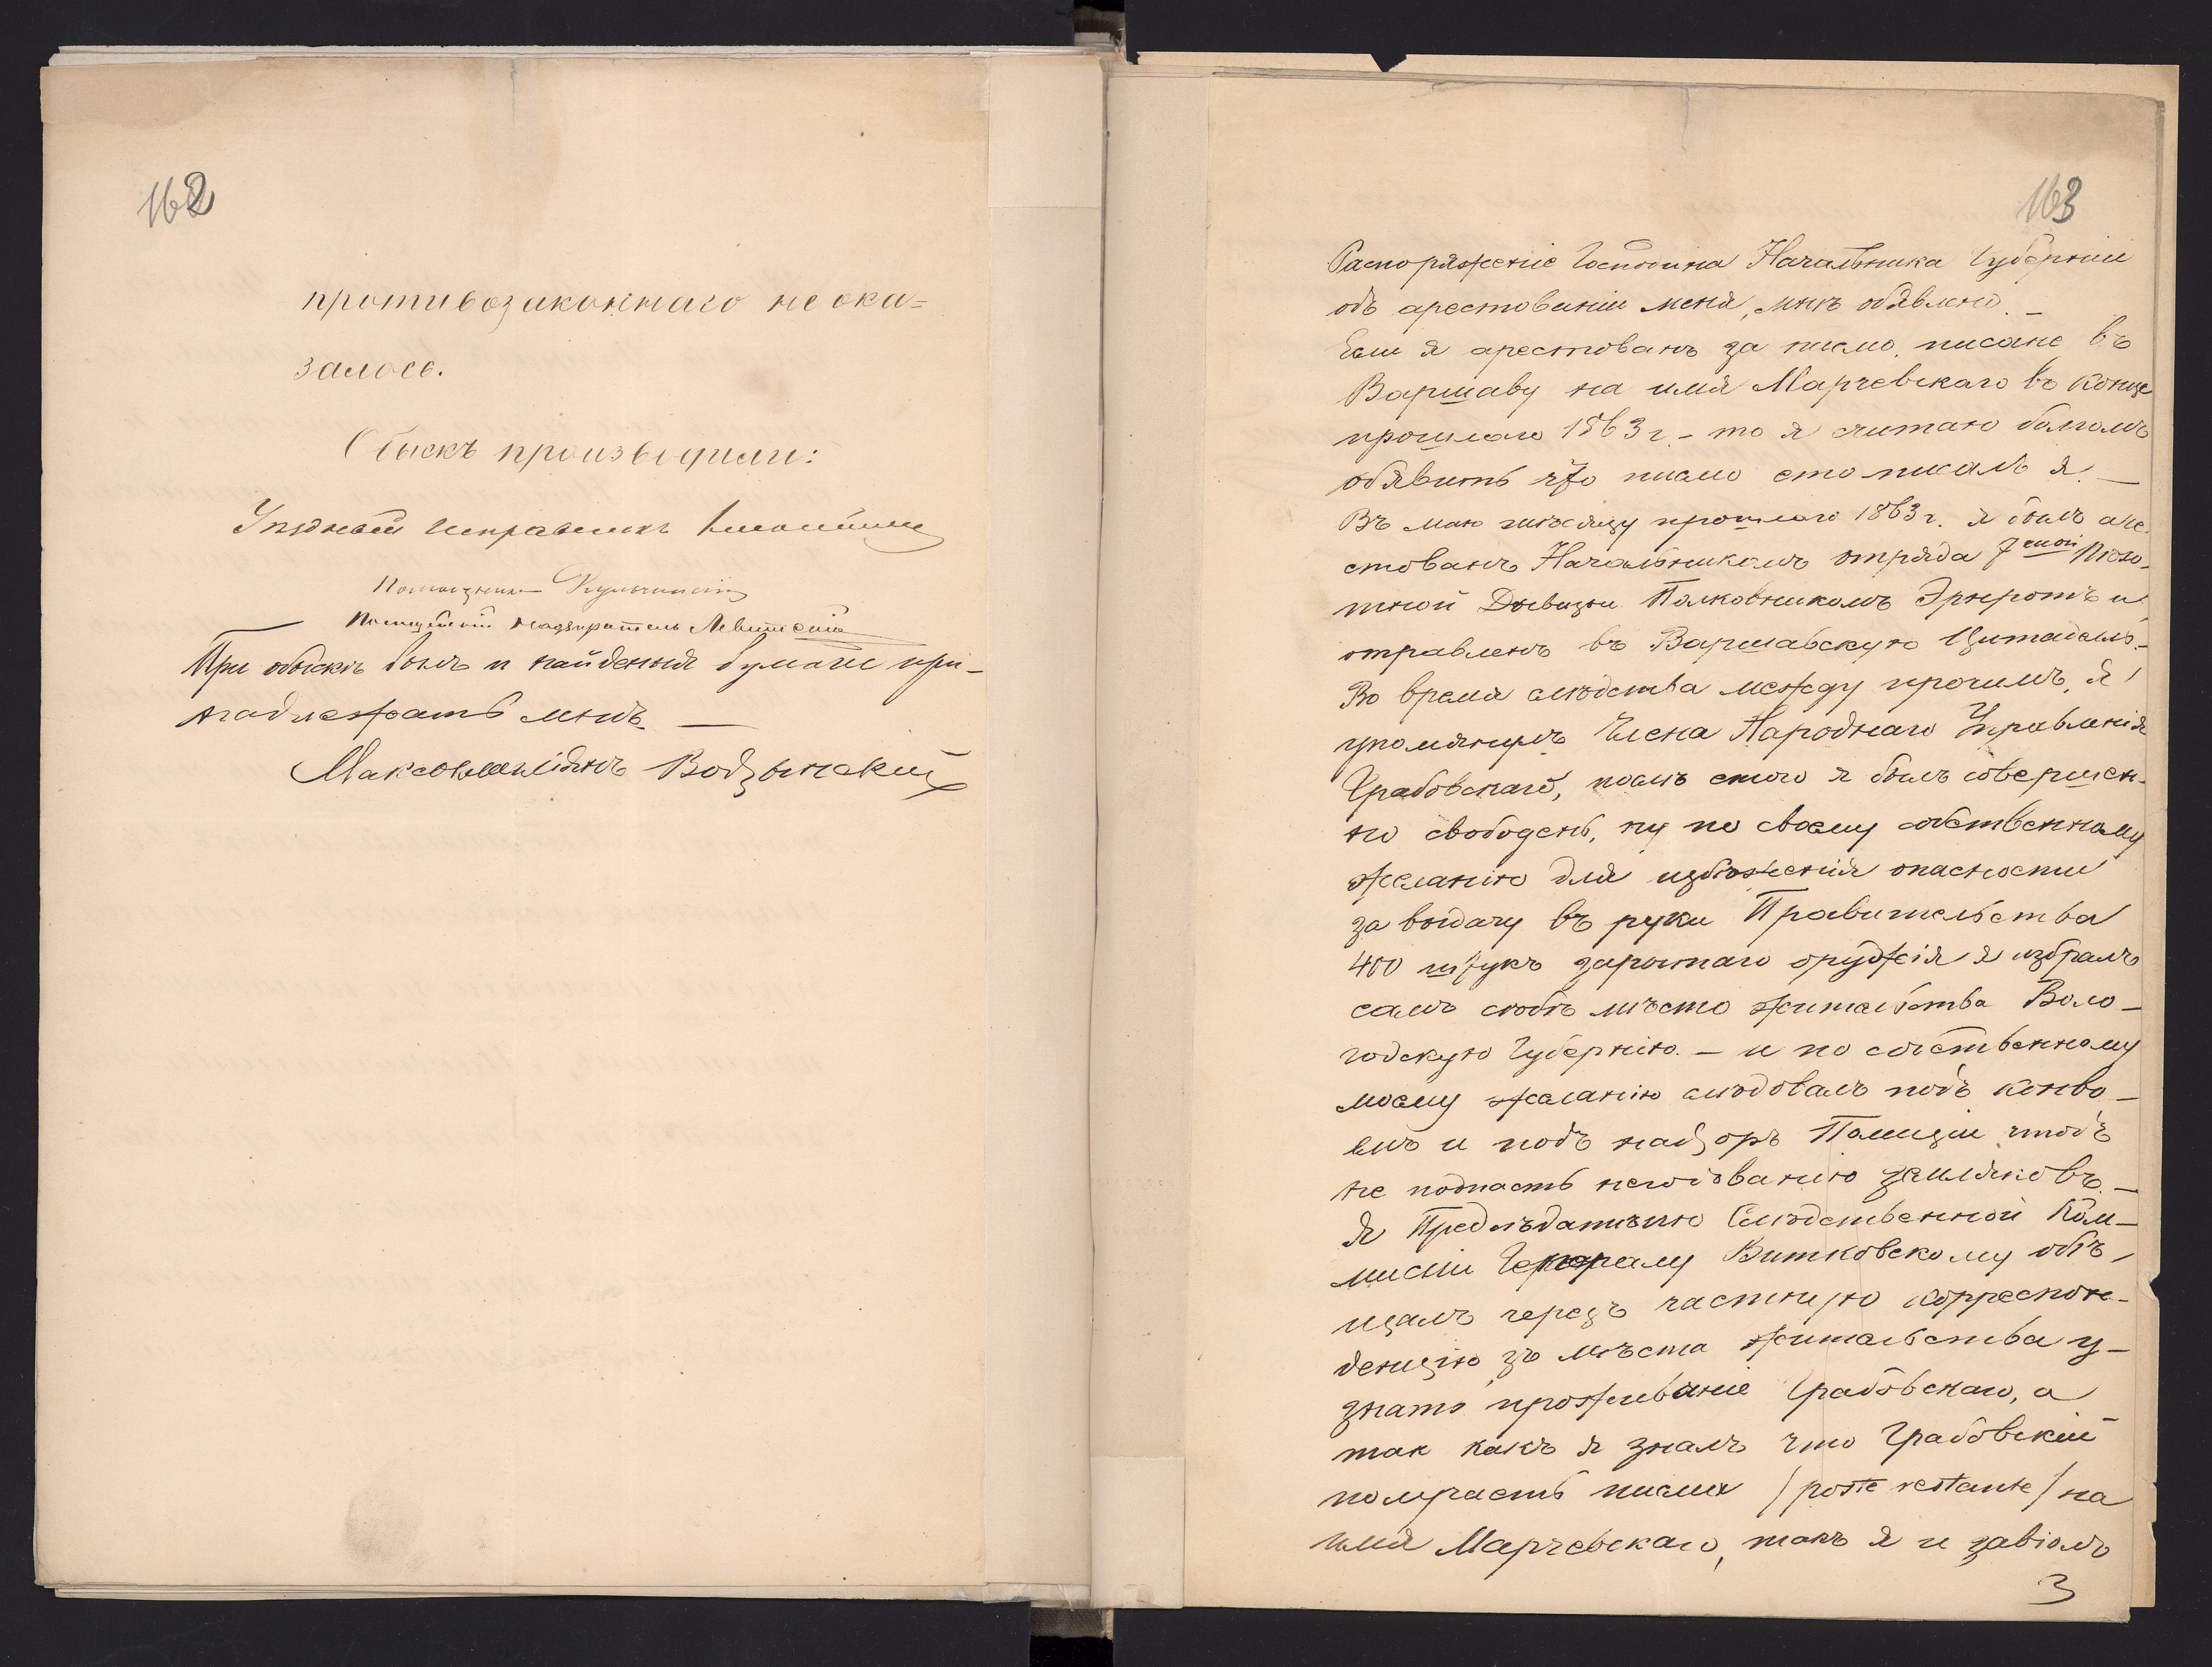 162
противозаконнаго не ока=
залось.
Обыскъ производили:
Уѣздный исправникъ
Помощникъ
Полицейскiй надзиратель Левитскiй
При обыскѣ былъ и найденныя бумаги при-
надлежатъ мнѣ —
Максимилiянъ Водзынский
163
Распоряженiе Господина Начальника Губернiи
объ арестованiи меня, мнѣ обявлено. —
Если я арестованъ за писмо, писане въ
Варшаву на имя Марчевскаго въ конце
прошлаго 1863 г. – то я считаю долгомъ
обявить что писмо ето писалъ я. —
Въ маю мѣсяцу прошлаго 1863 г. я былъ аре-
стованъ Начальникомъ отряда 7мой Пѣхо-
тной Дывизiи Полковникомъ Эрнротъ и
отравленъ въ Варшавскую Цитадель. –
Во время слѣдства между прочимъ, я
упомянулъ Члена Народнаго Управленiя
Грабовскаго, послѣ етого я былъ совершен-
но свободенъ, ну по своему собственному
желанiю для избѣженiя опасности
за выдачу въ руки Правительства
400 штукъ зарытаго оружiя я избралъ
самъ собѣ мѣсто жительства Воло-
годскую Губернiю. – и по собственному
моему желанiю слѣдовалъ подъ конво-
емъ и подъ надзоръ Полицiи чтобъ
не подпасть негодованiю земляковъ. –
Я Предсѣдателю Слѣдственной Ком-
мисiи Генералу Витковскому обѣ-
щалъ черезъ частную корреспон-
денцiю зъ мѣста жительства у-
знать проживанiе Грабовскаго, а
так какъ я зналъ что Грабовскiй
получаетъ писма / poste restante / на
имя Марчевскаго, такъ я и
3